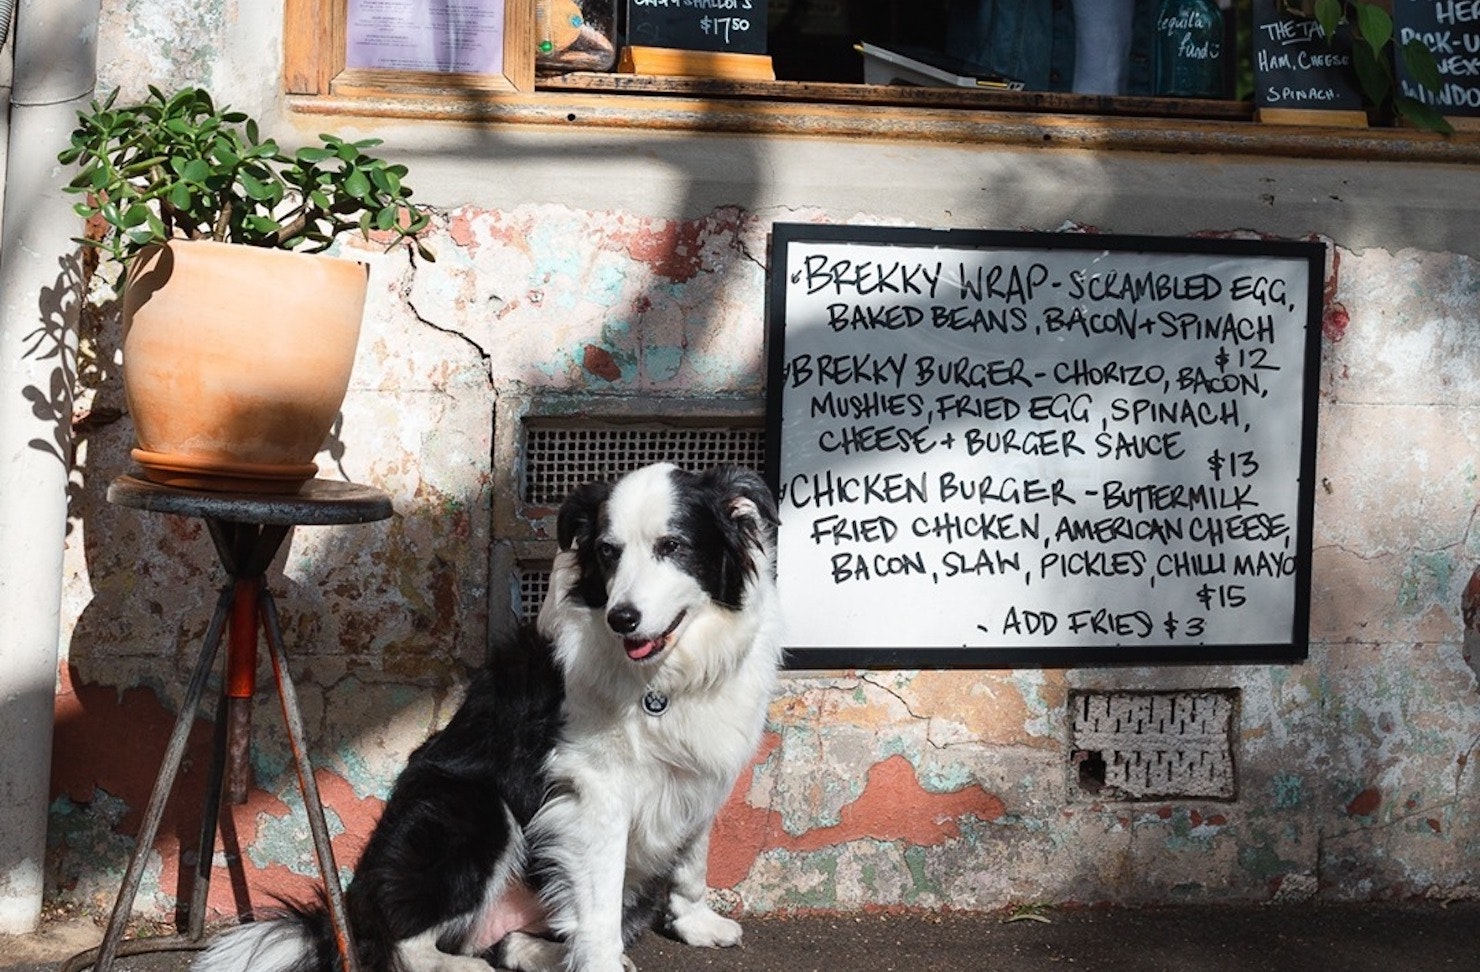 CRISPY SHALLOTS
$17.50
tequila
fund
THE
HAM, CHEESE
SPINACH.
PICK-U
WINDO
BREKKY WRAP - SCRAMBLED EGG,
BAKED BEANS, BACON + SPINACH
$12
BREKKY BURGER - CHORIZO, BACON,
MUSHIES, FRIED EGG, SPINACH,
CHEESE + BURGER SAUCE
$13
CHICKEN BURGER - BUTTERMILK
FRIED CHICKEN, AMERICAN CHEESE,
BACON, SLAW, PICKLES, CHILLI MAYO
$15
- ADD FRIES $3